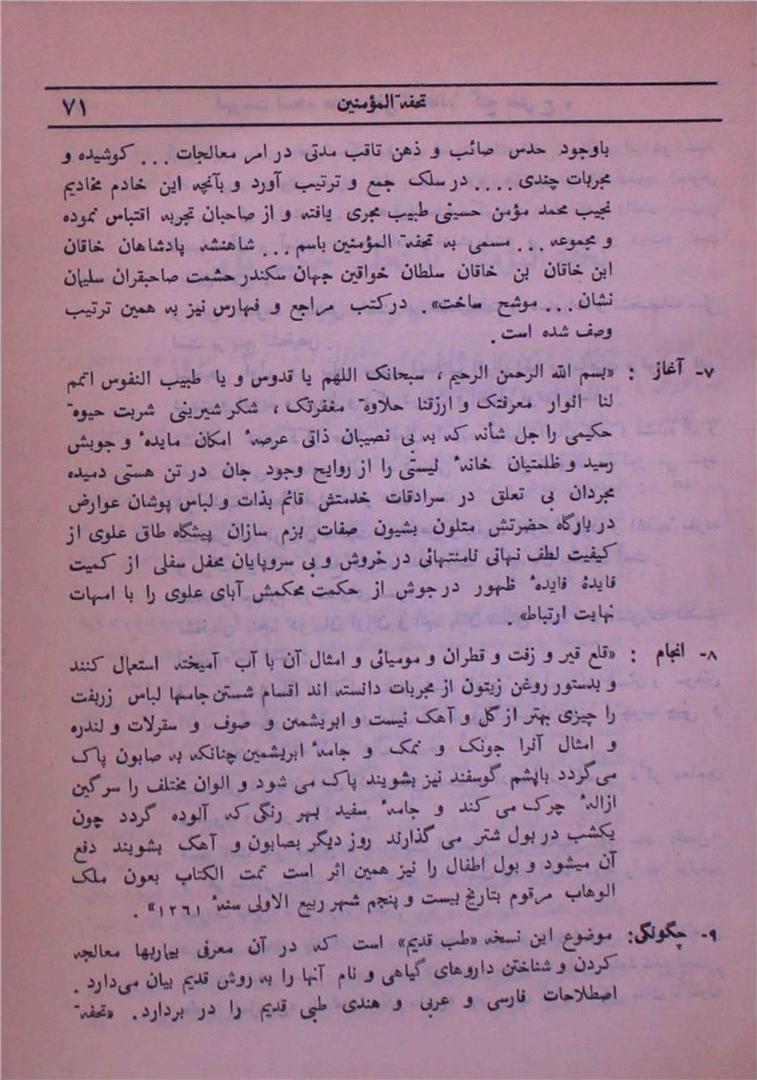 تحفة المؤمنین
۷۱
باوجود حدس صائب و ذهن ثاقب مدتی در امر معالجات ... کوشیده و
مجربات چندی .... در سلک جمع و ترتیب آورد و بآنچه این خادم مخادیم
نجیب محمد مؤمن حسینی طبیب مجری یافته و از صاحبان تجربه اقتباس نموده
و مجموعه ... مسمی به تحفة المؤمنین باسم ... شاهنشه پادشاهان خاقان
ابن خاقان بن خاقان سلطان خواقین جهان سکندر حشمت صاحبقران سلیمان
نشان ... موشح ساخت». در کتب مراجع و فهارس نیز به همین ترتیب
وصف شده است .
۷- آغاز : «بسم الله الرحمن الرحیم ، سبحانک اللهم یا قدوس و یا طبیب النفوس اتمم
لنا انوار معرفتک و ارزقنا حلاوة مغفرتک ، شکر شیرینی شربت حیوة
حکیمی را جل شأنه که به بی نصیبان ذاتی عرصهٔ امکان مایدهٔ و جوبش
رسید و ظلمتیان خانهٔ نیستی را از روایح وجود جان در تن هستی دمیده
مجردان بی تعلق در سرادقات خدمتش قائم بذات و لباس پوشان عوارض
در بارگاه حضرتش متلون بشیون صفات بزم سازان پیشگاه طاق علوی از
کیفیت لطف نهانی نامنتهائی در خروش و بی سروپایان محفل سفلی از کمیت
فایدهٔ فایدهٔ ظهور در جوش از حکمت محکمش آبای علوی را با امهات
نهایت ارتباط» .
۸- انجام : «قلع قیر و زفت و قطران و مومیائی و امثال آن با آب آمیخته استعمال کنند
و بدستور روغن زیتون از مجربات دانسته اند اقسام شستن جامها لباس زربفت
را چیزی بهتر از گل و آهک نیست و ابریشمین و صوف و سقرلات و لندره
و امثال آنرا جونک و نمک و جامهٔ ابریشمین چنانکه به صابون پاک
می گردد باپشم گوسفند نیز بشویند پاک می شود و الوان مختلف را سرگین
ازالهٔ چرک می کند و جامهٔ سفید بهر رنگی که آلوده گردد چون
یکشب در بول شتر می گذارند روز دیگر بصابون و آهک بشویند دفع
آن میشود و بول اطفال را نیز همین اثر است تمت الکتاب بعون ملک
الوهاب مرقوم بتاریخ بیست و پنجم شهر ربیع الاولی سنهٔ ۱۲۶۱» .
۹- چگونگی: موضوع این نسخه «طب قدیم» است که در آن معرفی بیماریها معالجه
کردن و شناختن داروهای گیاهی و نام آنها را به روش قدیم بیان می دارد .
اصطلاحات فارسی و عربی و هندی طبی قدیم را در بردارد. «تحفة